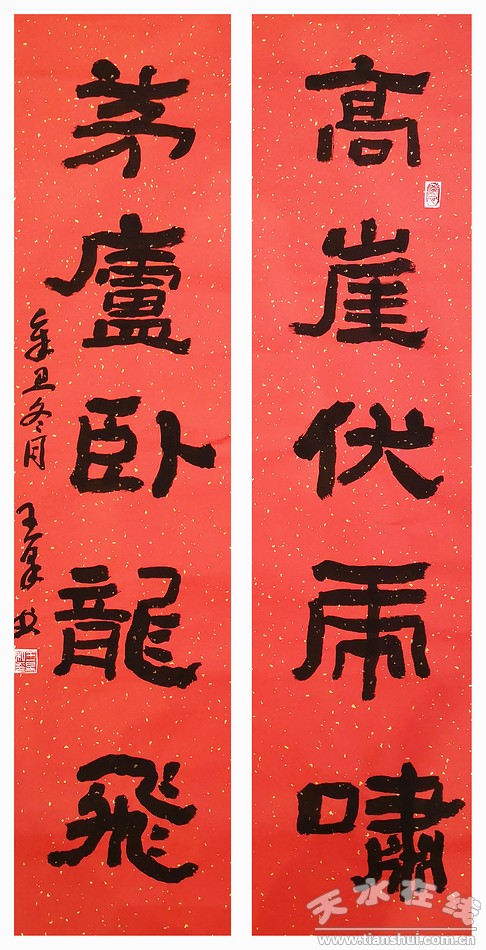 高崖伏虎嘯
茅廬卧龍飛
辛丑冬月
天水在线
www.tianshui.com.cn